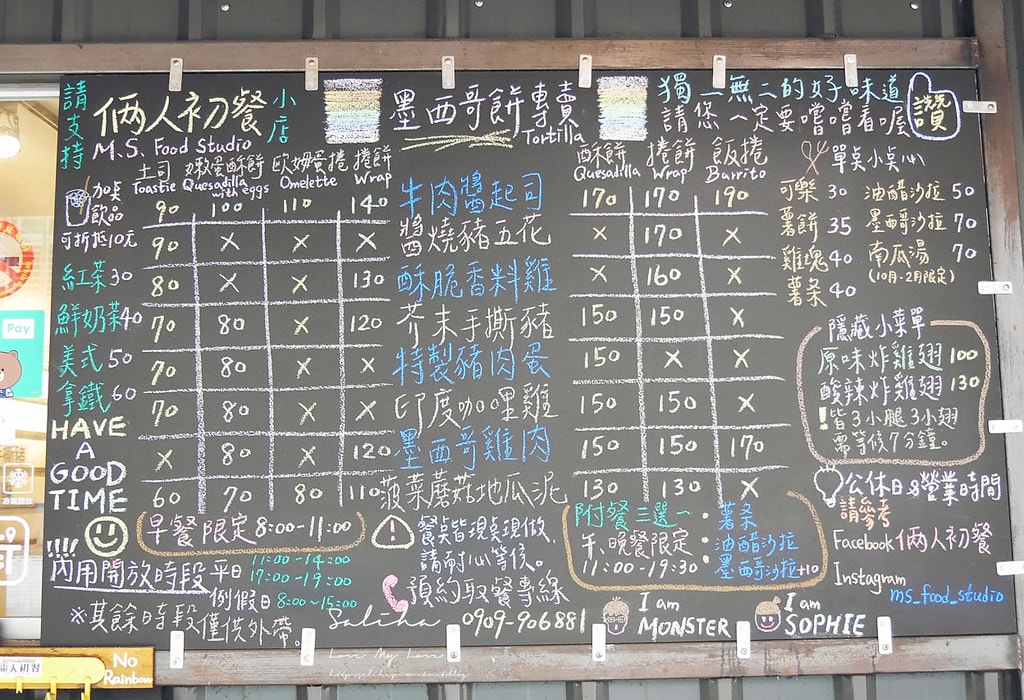 請支持
俩人初餐
小店
M.S. Food Studio
墨西哥餅專賣
Tortilla
獨一無二的好味道
請您一定要嚐嚐看喔
讚
土司 嫩蛋酥餅 歐姆蛋捲 捲餅
Toastie Quesadilla with eggs Omelette Wrap
酥餅 捲餅 飯捲
Quesadilla Wrap Burrito
90 100 110 140 牛肉醬起司 170 170 190
90 X X X 醬燒豬五花 X 170 X
80 X X 130 酥脆香料雞 X 160 X
70 80 X 120 芥末手撕豬 150 150 X
70 80 X X 特製豬肉蛋 150 X X
70 80 X X 印度咖哩雞 150 150 X
X 80 X 120 墨西哥雞肉 150 150 170
60 70 80 110 菠菜蘑菇地瓜泥 130 130 X
加桌
飲品
可折抵10元
紅茶30
鮮奶茶40
美式50
拿鐵60
HAVE
A
GOOD
TIME
單桌小桌心
可樂 30 油醋沙拉 50
薯餅 35 墨西哥沙拉 70
雞塊 40 南瓜湯 70
(10月-2月限定)
薯条 40
隱藏小菜單
原味炸雞翅 100
酸辣炸雞翅 130
! 皆3小腿3小翅
需等候7分鐘。
公休日&營業時間
請參考
Facebook 俩人初餐
Instagram
ms_food_studio
早餐限定8:00-11:00
!!!!
內用開放時段 平日 11:00-14:00
17:00-19:00
例假日 8:00~15:00
※其餘時段僅供外帶。
!
餐桌皆現桌現做,
請耐心等候。
預約取餐專線
Saliha 0909-906881
附餐三選一:
午、晚餐限定
11:00-19:30
・薯条
・油醋沙拉
・墨西哥沙拉+10
I am
MONSTER
I am
SOPHIE
Pay
冷氣開放
No
Rainbow
Love My Love